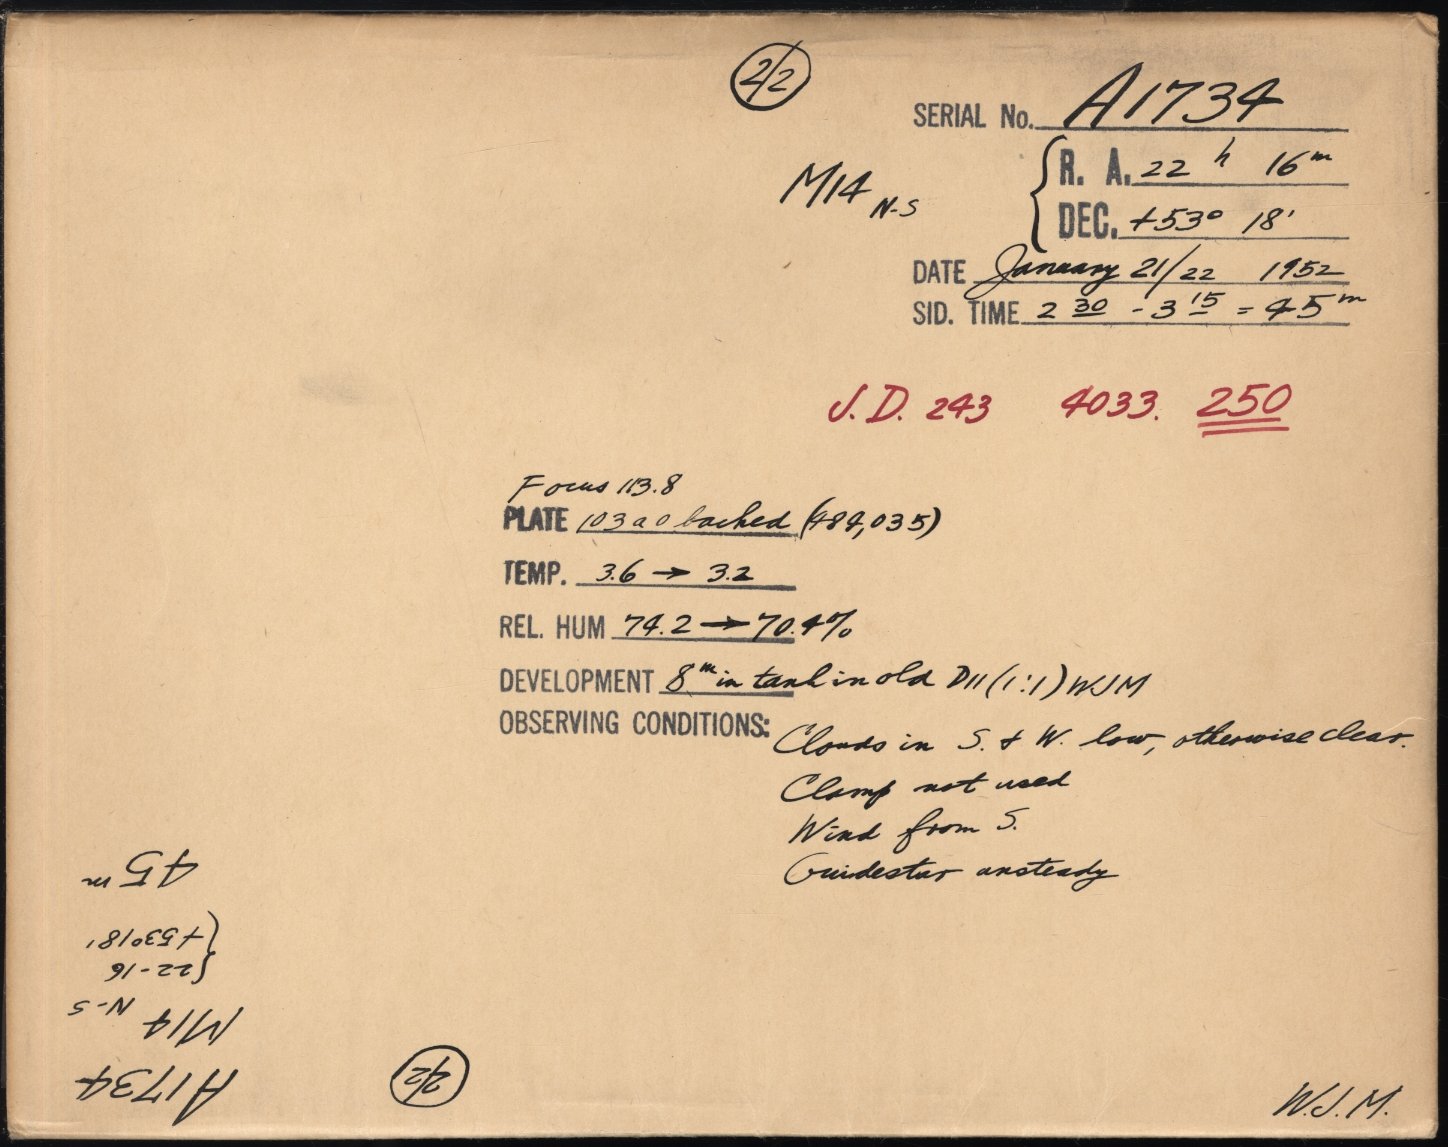 2/2
SERIAL No. A1734
M14 N-S
R. A. 22 h 16 m
DEC. +53° 18'
DATE January 21/22 1952
SID. TIME 2 30 - 3 15 = 45 m
J.D. 243 4033. 250
Focus 113.8
PLATE 103 a O backed (484,035)
TEMP. 3.6 → 3.2
REL. HUM 74.2 → 70.4%
DEVELOPMENT 8 m in tank in old D11 (1:1) WJM
OBSERVING CONDITIONS: Clouds in S. & W. low, otherwise clear.
Clamp not used
Wind from S.
Guidestar unsteady
A1734
M14 N-S
22-16
+53°18'
45 m
2/2
W.J.M.